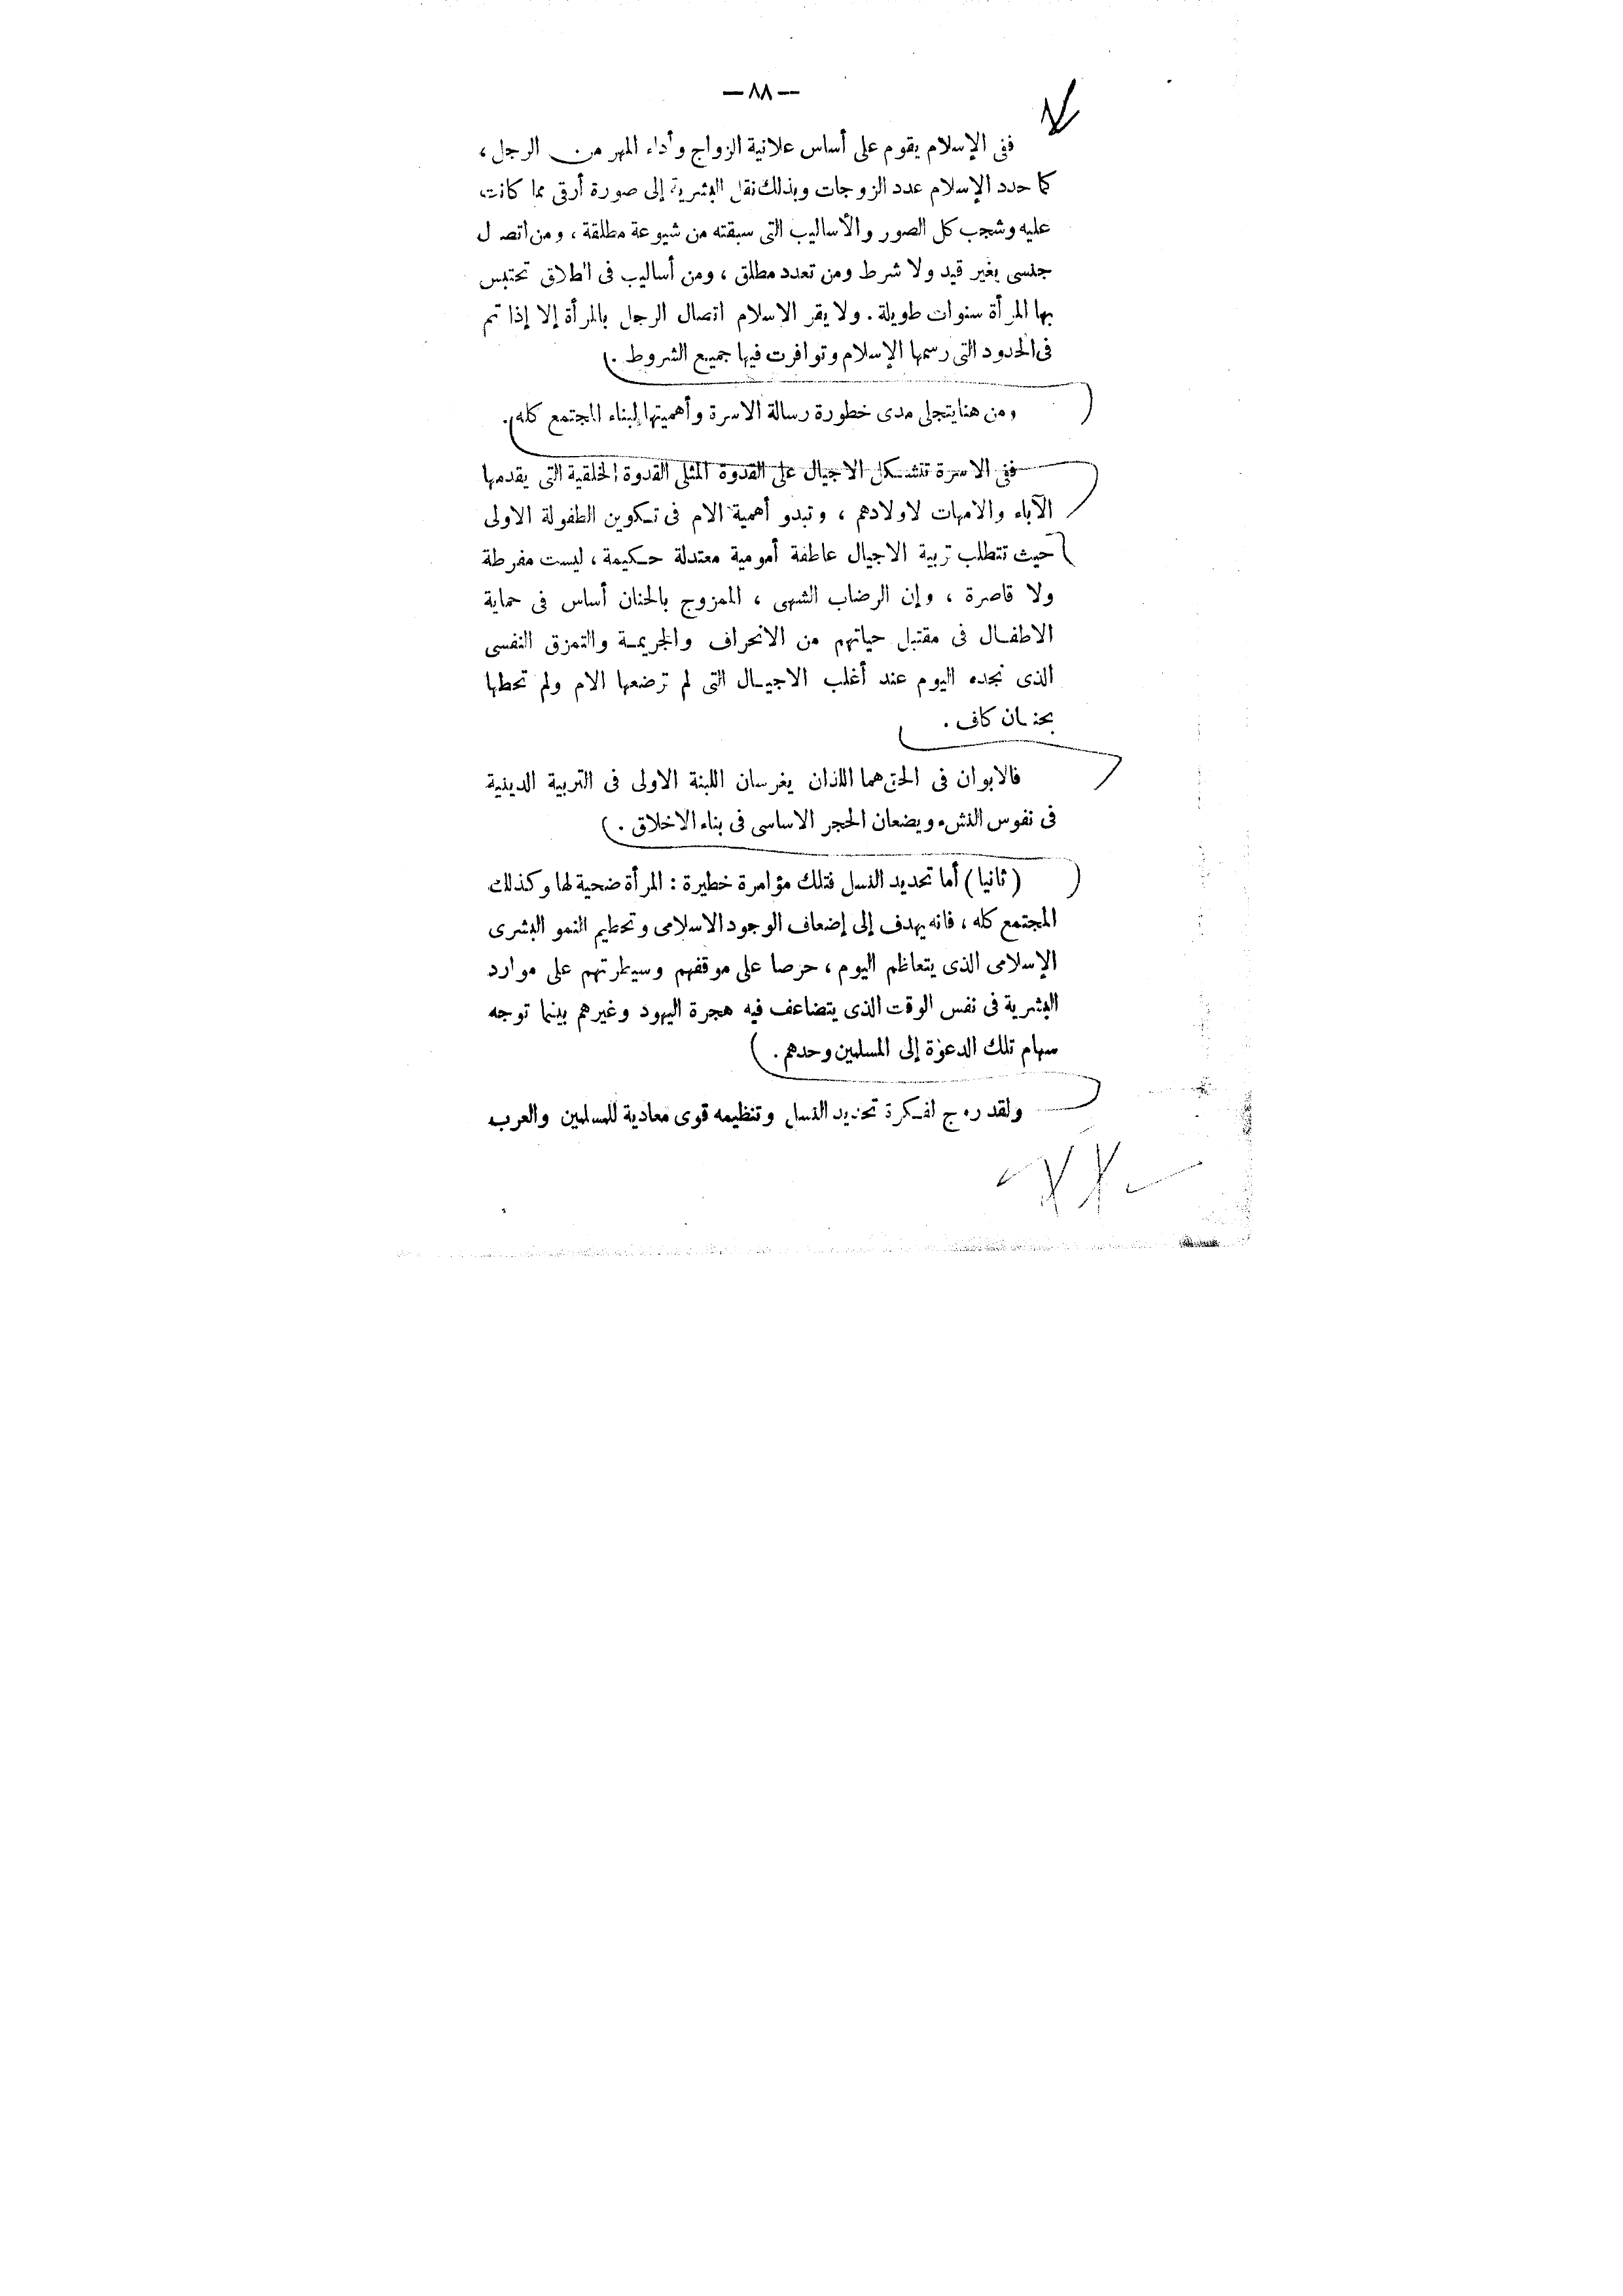 — ٨٨ —
ففى الإسلام يقوم على أساس علانية الزواج وأداء المهر من الرجل ،
كما حدد الإسلام عدد الزوجات وبذلك نقل البشرية إلى صورة أرقى مما كانت
عليه وشجب كل الصور والأساليب التى سبقته من شيوعة مطلقة ، ومن اتصال
جنسى بغير قيد ولا شرط ومن تعدد مطلق ، ومن أساليب فى الطلاق تحتبس
بها المرأة سنوات طويلة . ولا يقر الاسلام اتصال الرجل بالمرأة إلا إذا تم
فى الحدود التى رسمها الإسلام وتوافرت فيها جميع الشروط .
ومن هنا يتجلى مدى خطورة رسالة الاسرة وأهميتها لبناء المجتمع كله .
ففى الاسرة تتشكل الاجيال على القدوة المثلى القدوة الخلقية التى يقدمها
الآباء والامهات لاولادهم ، وتبدو أهمية الام فى تكوين الطفولة الاولى
حيث تتطلب تربية الاجيال عاطفة أمومية معتدلة حكيمة ، ليست مفرطة
ولا قاصرة ، وإن الرضاب الشهى ، الممزوج بالحنان أساس فى حماية
الاطفال فى مقتبل حياتهم من الانحراف والجريمة والتمزق النفسى
الذى نجده اليوم عند أغلب الاجيال التى لم ترضعها الام ولم تحطها
بحنان كاف .
فالابوان فى الحق هما اللذان يغرسان اللبنة الاولى فى التربية الدينية
فى نفوس النشء ويضعان الحجر الاساسى فى بناء الاخلاق .
( ثانيا ) أما تحديد النسل فتلك مؤامرة خطيرة : المرأة ضحية لها وكذلك
المجتمع كله ، فانه يهدف إلى إضعاف الوجود الاسلامى وتحطيم النمو البشرى
الإسلامى الذى يتعاظم اليوم ، حرصا على موقفهم وسيطرتهم على موارد
البشرية فى نفس الوقت الذى يتضاعف فيه هجرة اليهود وغيرهم بينما توجه
سهام تلك الدعوة إلى المسلمين وحدهم .
ولقد روج لفكرة تحديد النسل وتنظيمه قوى معادية للمسلمين والعرب